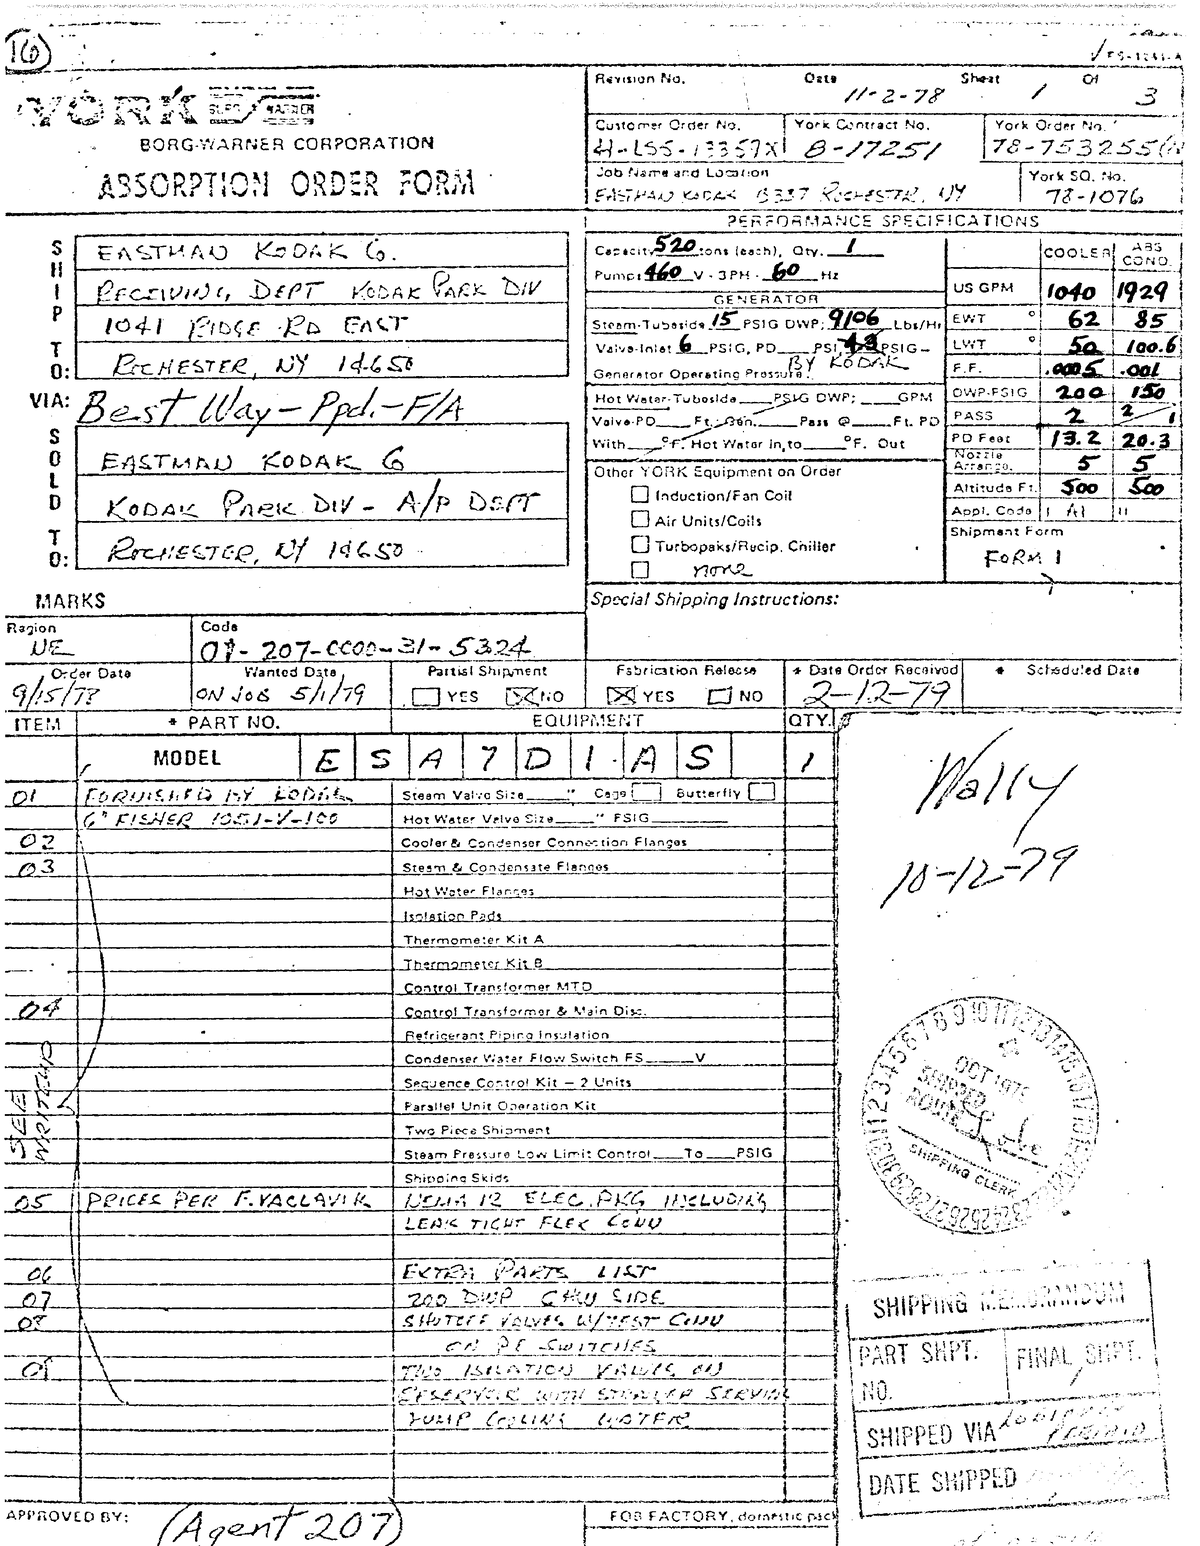 16
Revision No. Date Sheet Of
11-2-78 1 3
YORK BORG WARNER
BORG-WARNER CORPORATION
ABSORPTION ORDER FORM
Customer Order No. York Contract No. York Order No.
8-17251 78-753255
Job Name and Location York SQ. No.
EASTMAN KODAK B337 ROCHESTER, NY 78-1076
SHIP TO:
EASTMAN KODAK Co.
RECEIVING DEPT KODAK PARK DIV
1041 RIDGE RD EAST
ROCHESTER, NY 14650
VIA: Best Way-Ppd.-F/A
SOLD TO:
EASTMAN KODAK Co
KODAK PARK DIV - A/P DEPT
ROCHESTER, NY 14650
PERFORMANCE SPECIFICATIONS
Capacity 520 tons (each), Qty. 1
Pump: 460 V - 3PH - 60 Hz
GENERATOR
Steam-Tubeside 15 PSIG DWP; 9106 Lbs/Hr
Valve-Inlet 6 PSIG, PD PSI PSIG-
BY KODAK
Generator Operating Pressure.
Hot Water-Tubeside PSIG DWP; GPM
Valve-PD Ft.; Gen. Pass @ Ft. PD
With °F. Hot Water in, to °F. Out
Other YORK Equipment on Order
Induction/Fan Coil
Air Units/Coils
Turbopaks/Recip. Chiller
none
COOLER ABS COND.
US GPM 1040 1929
EWT ° 62 85
LWT ° 50 100.6
F.F. .0005 .001
DWP-PSIG 200 150
PASS 2 2/1
PD Feet 13.2 20.3
Nozzle Arrange. 5 5
Altitude Ft. 500 500
Appl. Code I A1 II
Shipment Form
FORM 1
MARKS
Special Shipping Instructions:
Region Code
NE 07-207-0000-31-5324
Order Date Wanted Date Partial Shipment Fabrication Release * Date Order Received * Scheduled Date
9/15/78 ON JOB 5/1/79 YES NO YES NO 2-12-79
ITEM * PART NO. EQUIPMENT QTY.
MODEL E S A 7 D 1 A S 1
01 FURNISHED BY KODAK Steam Valve Size " Cage Butterfly
6" FISHER 1051-V-100 Hot Water Valve Size " PSIG
02 Cooler & Condenser Connection Flanges
03 Steam & Condensate Flanges
Hot Water Flanges
Isolation Pads
Thermometer Kit A
Thermometer Kit B
Control Transformer MTD
04 Control Transformer & Main Disc.
Refrigerant Piping Insulation
Condenser Water Flow Switch FS V
Sequence Control Kit - 2 Units
Parallel Unit Operation Kit
Two Piece Shipment
Steam Pressure Low Limit Control To PSIG
Shipping Skids
SEE WRITEUP
05 PRICES PER F. VACLAVIK NEMA 12 ELEC. PKG INCLUDING
LEAK TIGHT FLEX CONN
06 EXTRA PARTS LIST
07 200 DWP CHW SIDE
08 SHUTOFF VALVES W/TEST CONN
ON PE SWITCHES
09 TWO ISOLATION VALVES ON
RESERVOIR WITH STRAINER SERVING
PUMP COOLING WATER
Wally
10-12-79
OCT 1979
SHIPPED
ROUTE
SHIPPING CLERK
SHIPPING MEMORANDUM
PART SHPT. FINAL SHPT.
NO.
SHIPPED VIA
DATE SHIPPED
APPROVED BY: (Agent 207)
FOB FACTORY, domestic pack